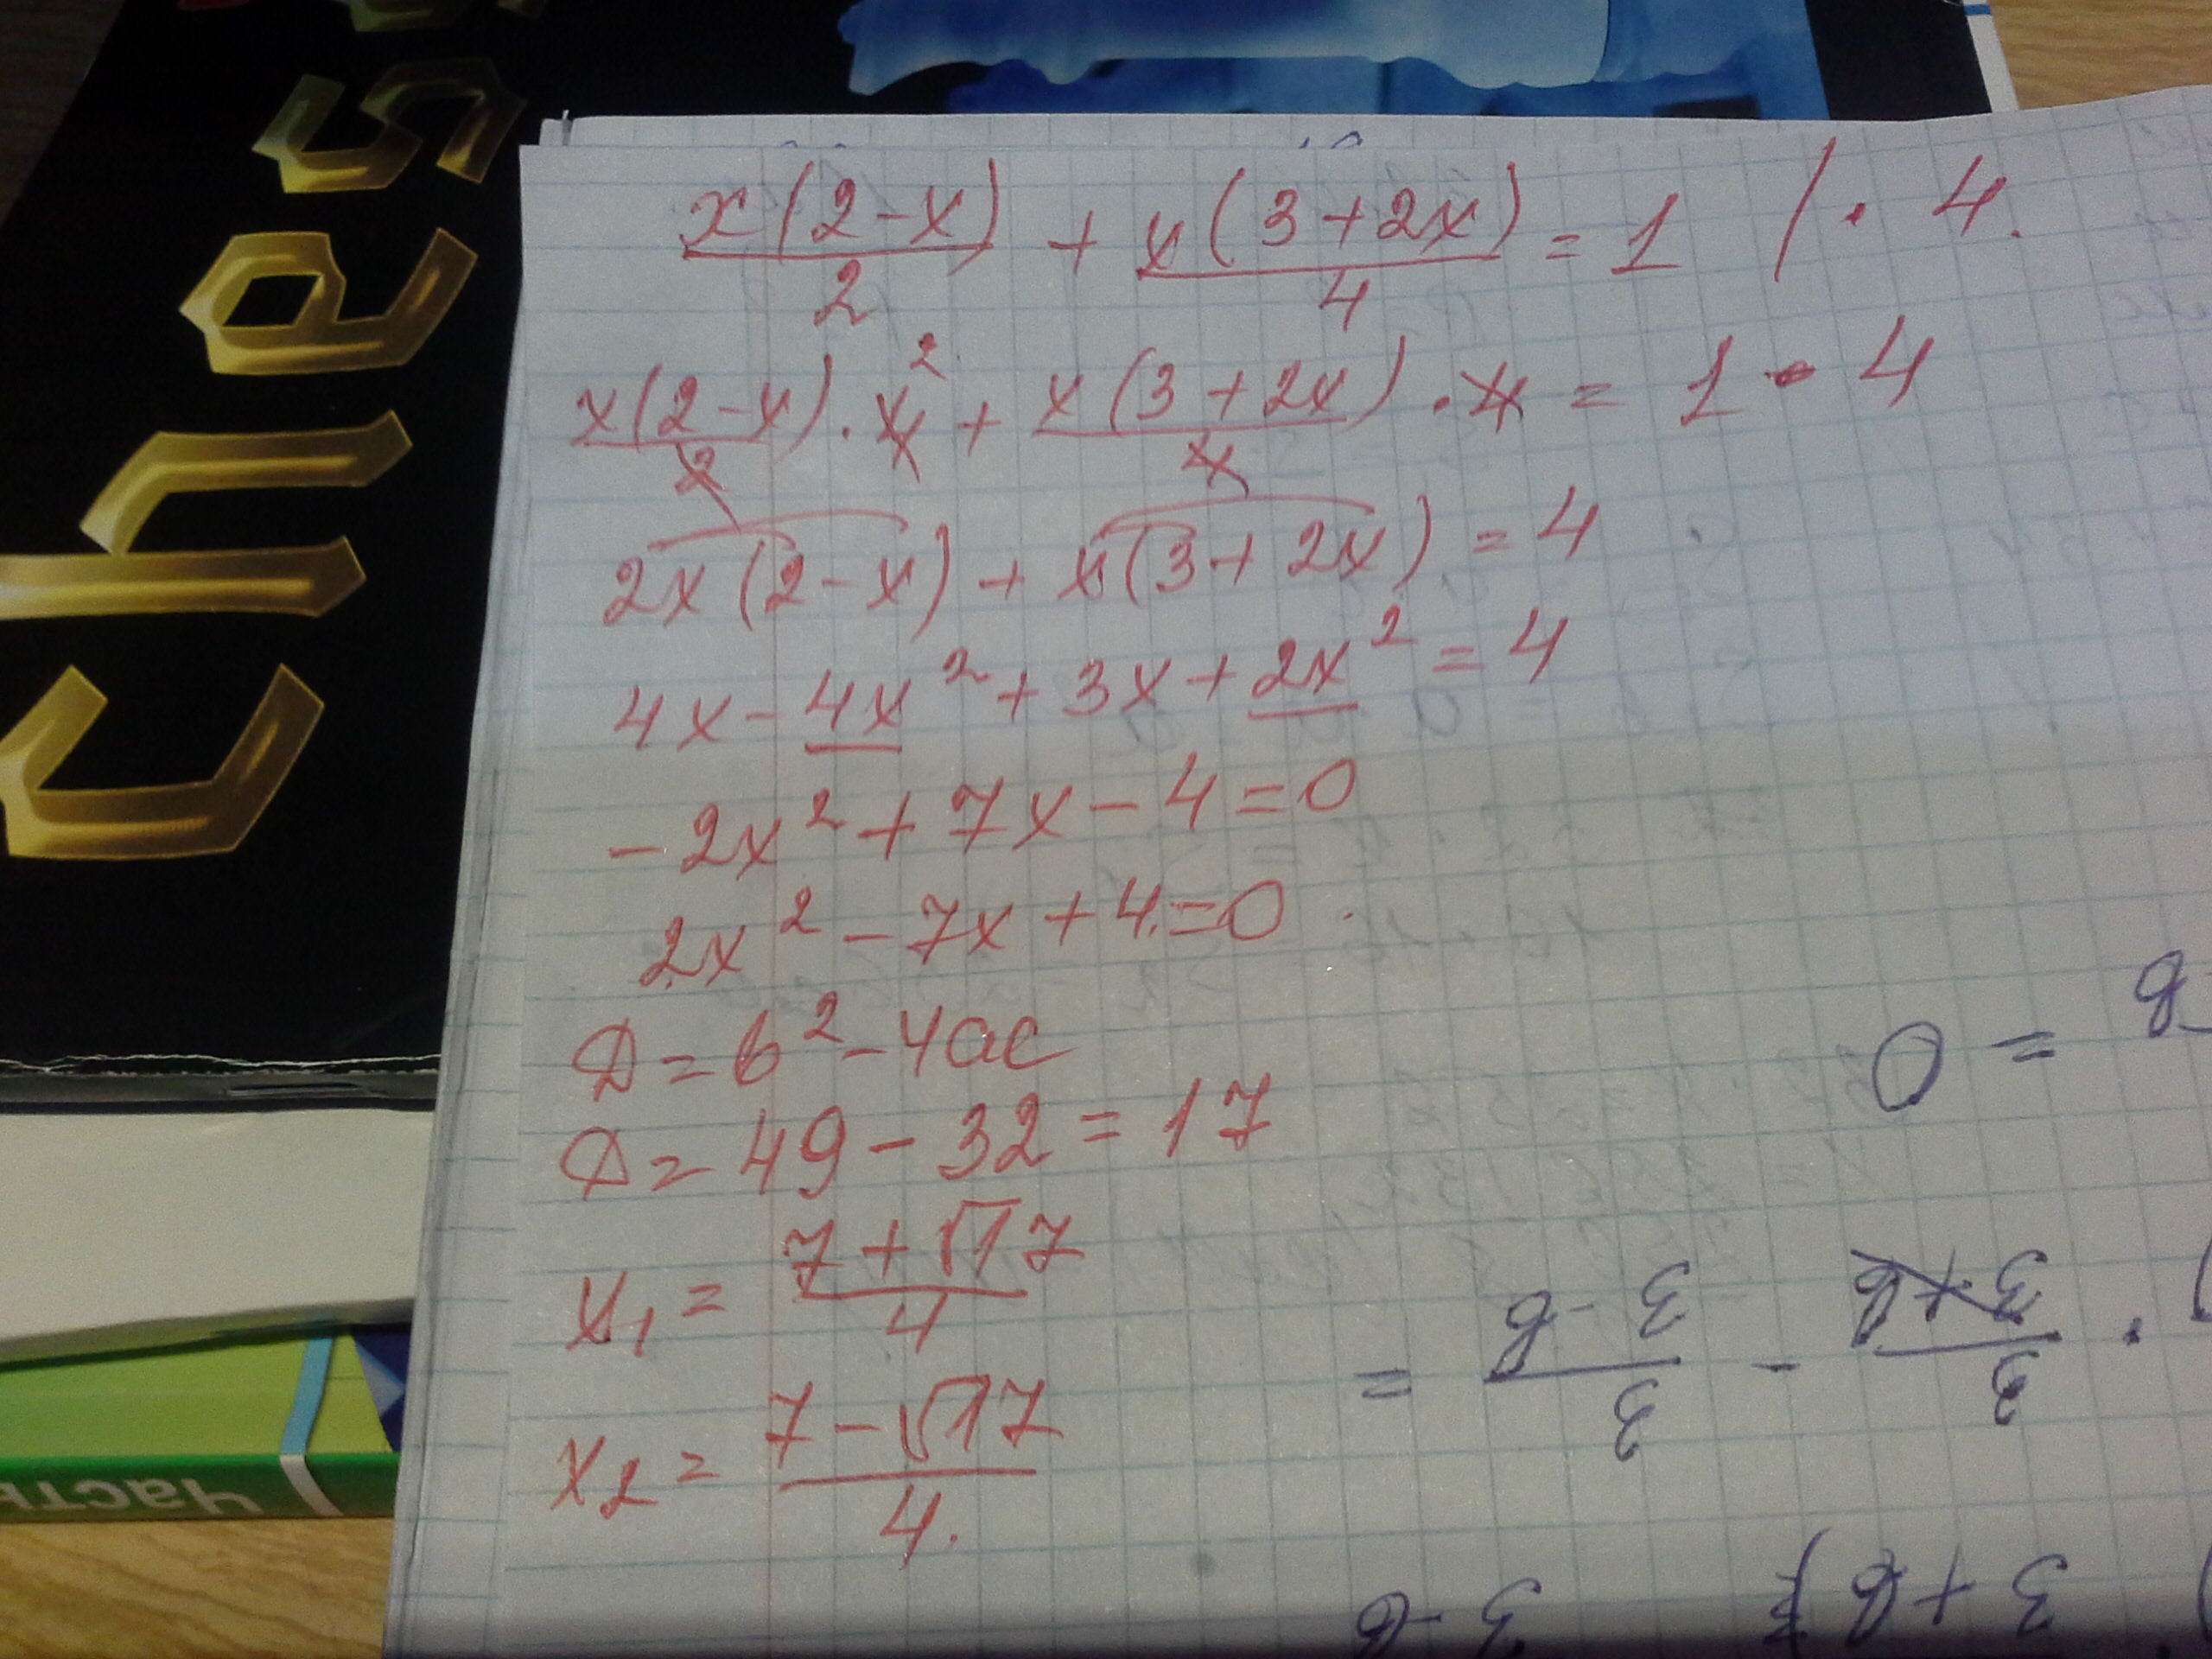 ches
x(2-x)/2 + x(3+2x)/4 = 1 | · 4.
x(2-x)/2 · 4² + x(3+2x)/4 · 4 = 1 · 4
2x(2-x) + x(3+2x) = 4
4x - 4x² + 3x + 2x² = 4
-2x² + 7x - 4 = 0
2x² - 7x + 4 = 0
D = b² - 4ac
D = 49 - 32 = 17
x₁ = (7+√17)/4
x₂ = (7-√17)/4.
Часть
= 0
3 + в
3 - в
3/(3+в) - 3/(3-в) =